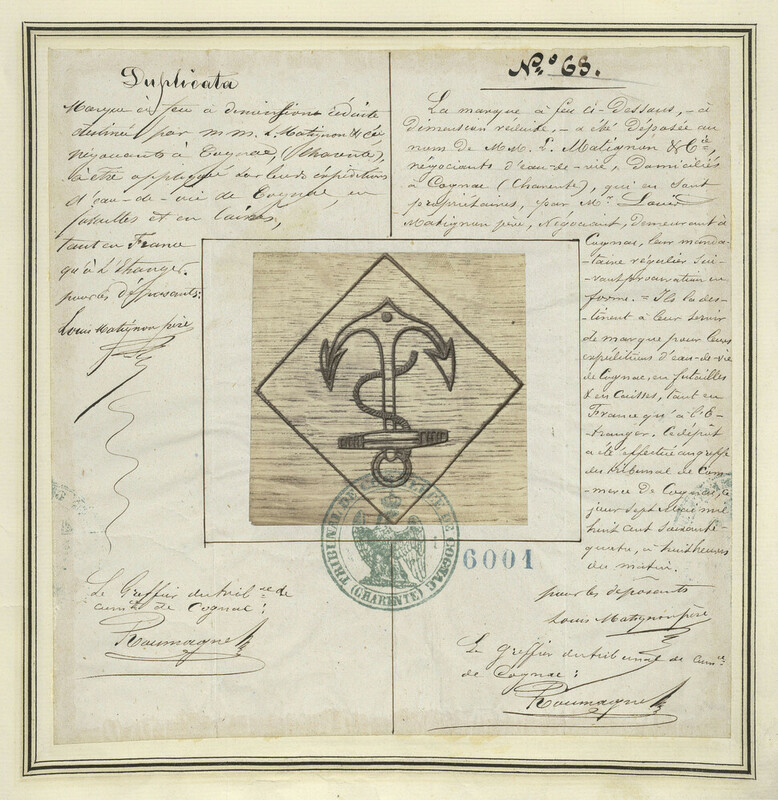 Duplicata
Marque à feu à dimension réduite
destinée par M.M. L. Matignon & Cie
négociants à Cognac, (Charente),
à être appliquée sur leurs expéditions
d'eau-de-vie de Cognac, en
futailles et en caisses,
tant en France
qu'à l'étranger.
pour les déposants:
Louis Matignon père
Le Greffier du trib.al de
com.ce de Cognac:
Roumagne
No. 68.
La marque à feu ci-Dessus, - à
Dimension réduite, - a été Déposée au
nom de M.M. L. Matignon & Cie,
négociants d'eau-de-vie, Domiciliés
à Cognac (Charente), qui en sont
propriétaires, par Mr. Louis
Matignon père, Négociant, demeurant à
Cognac, leur manda-
-taire régulier sui-
-vant procuration en
forme. = Ils la des-
-tinent à leur servir
de marque pour leurs
expéditions d'eau-de-vie
de Cognac, en futailles
& en Caisses, tant en
France qu'à l'É-
-tranger. Ce dépôt
a été effectué au greffe
du tribunal de Com-
-merce de Cognac, ce
jour sept Mai mil
huit cent soixante-
quatre, à huit heures
du matin.
pour les déposants
Louis Matignon père
Le Greffier du tribunal de com.ce
de Cognac:
Roumagne
TRIBUNAL DE COMMERCE DE COGNAC
(CHARENTE)
6001